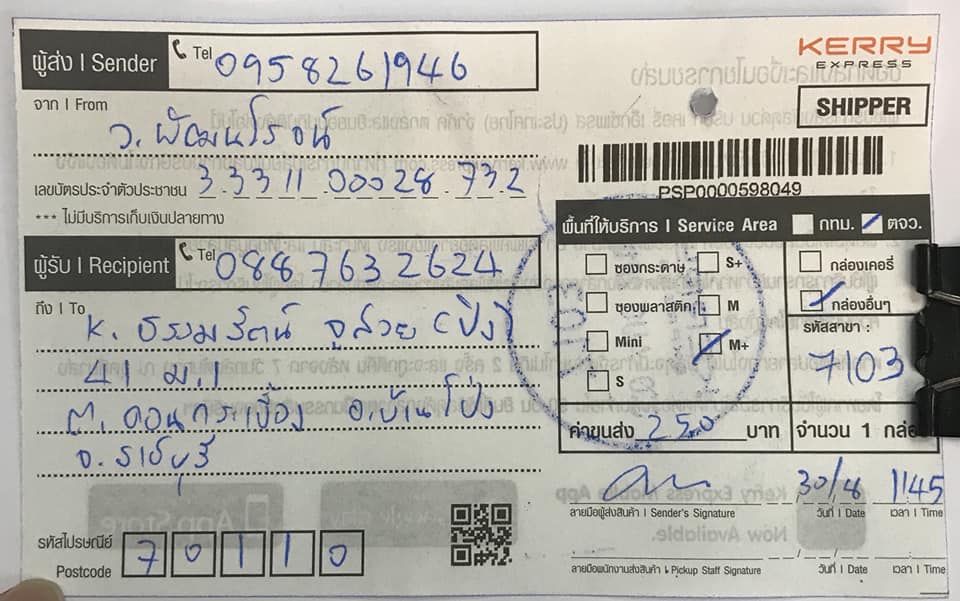 ผู้ส่ง | Sender
Tel 0958261946
KERRY
EXPRESS
SHIPPER
จาก | From
ว. พัฒนโรจน์
เลขบัตรประจำตัวประชาชน 3 3311 00028 732
*** ไม่มีบริการเก็บเงินปลายทาง
PSP0000598049
พื้นที่ให้บริการ | Service Area กทม. ตจว.
ซองกระดาษ S+ กล่องเคอรี่
ซองพลาสติก M กล่องอื่นๆ
Mini M+
S
รหัสสาขา :
7103
ค่าขนส่ง 250 บาท
จำนวน 1 กล่อง
ผู้รับ | Recipient
Tel 0887632624
ถึง | To
K. ธรรมรัตน์ จูสวย (ปิง)
41 ม.1
ต. ดอนกระเบื้อง อ. บ้านโป่ง
จ. ราชบุรี
รหัสไปรษณีย์
Postcode 70110
30/8 1145
ลายมือผู้ส่งสินค้า | Sender's Signature วันที่ | Date เวลา | Time
ลายมือพนักงานส่งสินค้า | Pickup Staff Signature วันที่ | Date เวลา | Time